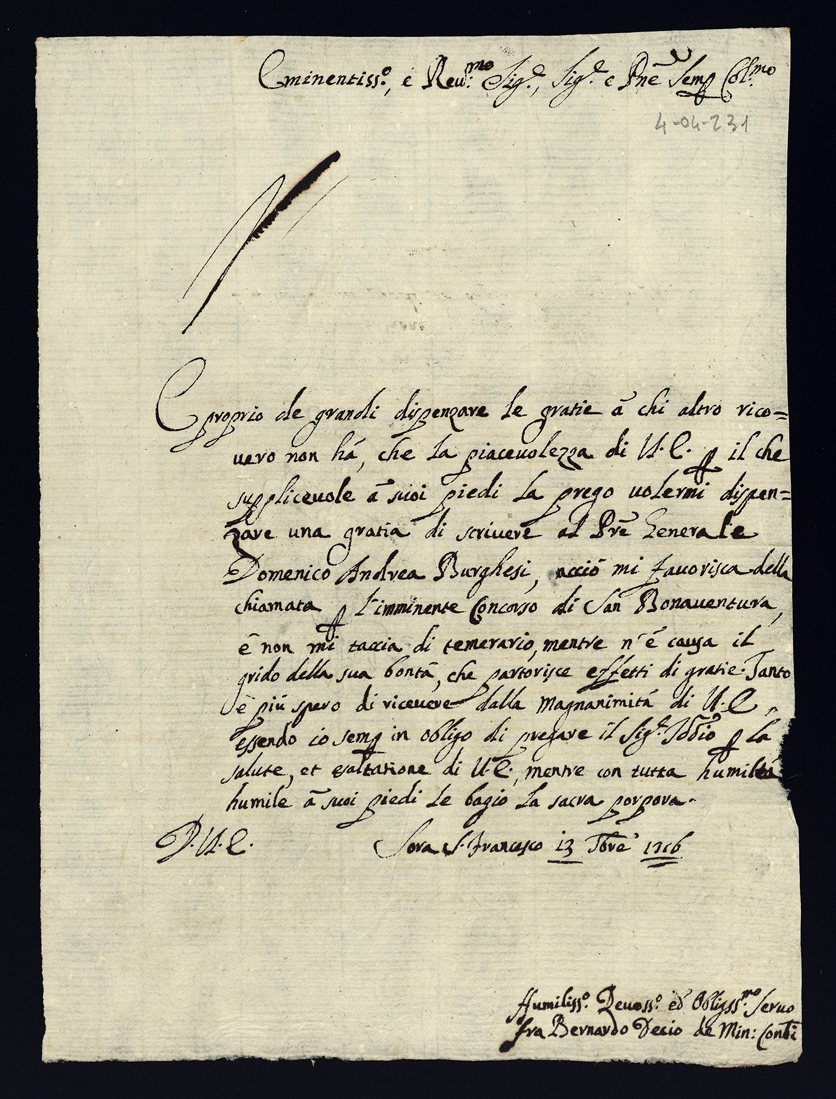 Eminentiss:º, e Reu:mo Sig.e, Sig.e e Pñe Semp Col:mo
4-04-231
È proprio de grandi dispenzare le gratie à chi altro rico=
uero non hà, che la piaceuolezza di U.E. p il che
suppliceuole à suoi piedi la prego uolermi dispen=
zare una gratia di scriuere al Prẽ Generale
Domenico Andrea Burghesi, acciò mi fauorisca della
chiamata p l'imminente Concorso di San Bonauentura,
è non mi taccia di temerario, mentre n'è causa il
grido della sua bontà, che partorisce effetti di gratie. Tanto
è più spero di riceuere dalla magnanimità di U.E.,
essendo io semp in obligo di pregare il Sig.r Iddio p la
salute, et esaltatione di U.E., mentre con tutta humiltà
humile à suoi piedi le bagio la sacra porpora.
D.U.E. Sora S. Francesco 13 bre 1716
Humiliss:º Deuoss:º ed Obligss:mo Seruo
fra Bernardo Decio de Min: Conti